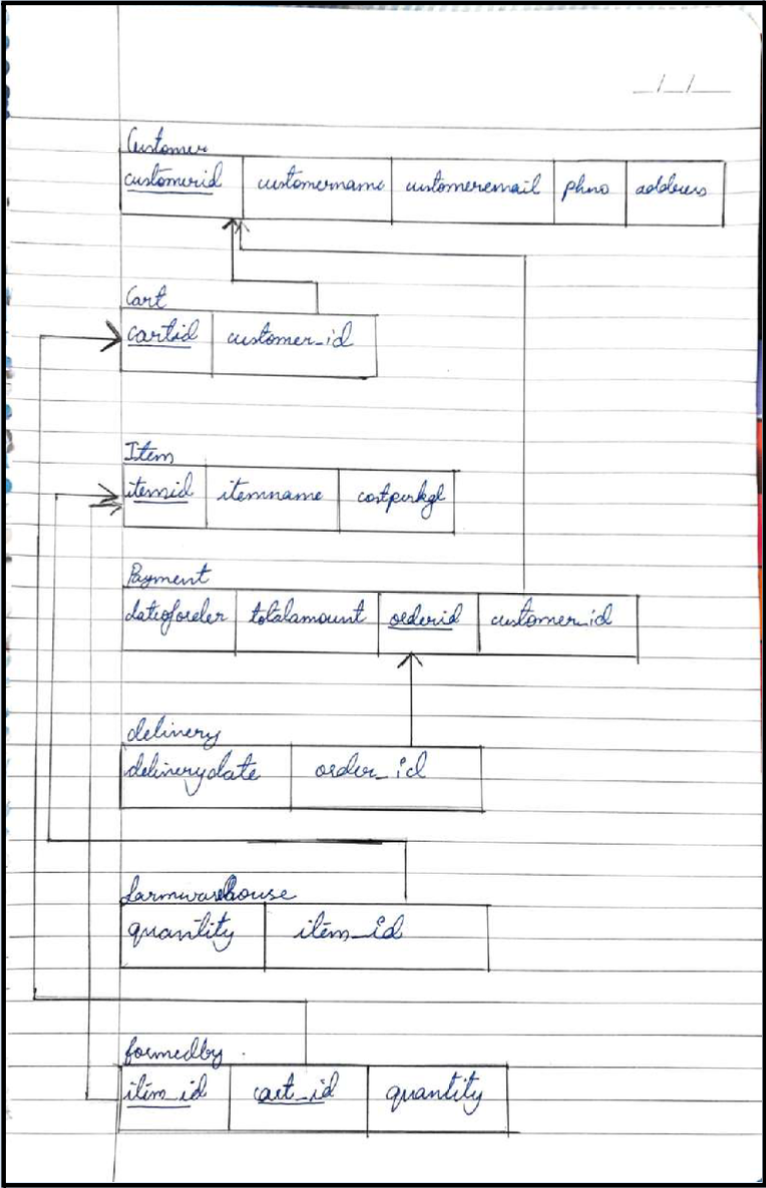 _/_/_
Customer
customerid customername customeremail phno address
Cart
cartid customer_id
Item
itemid itemname costperkgl
Payment
dateoforder totalamount orderid customer_id
delivery
deliverydate order_id
farmwarehouse
quantity item_id
formedby
item_id cart_id quantity